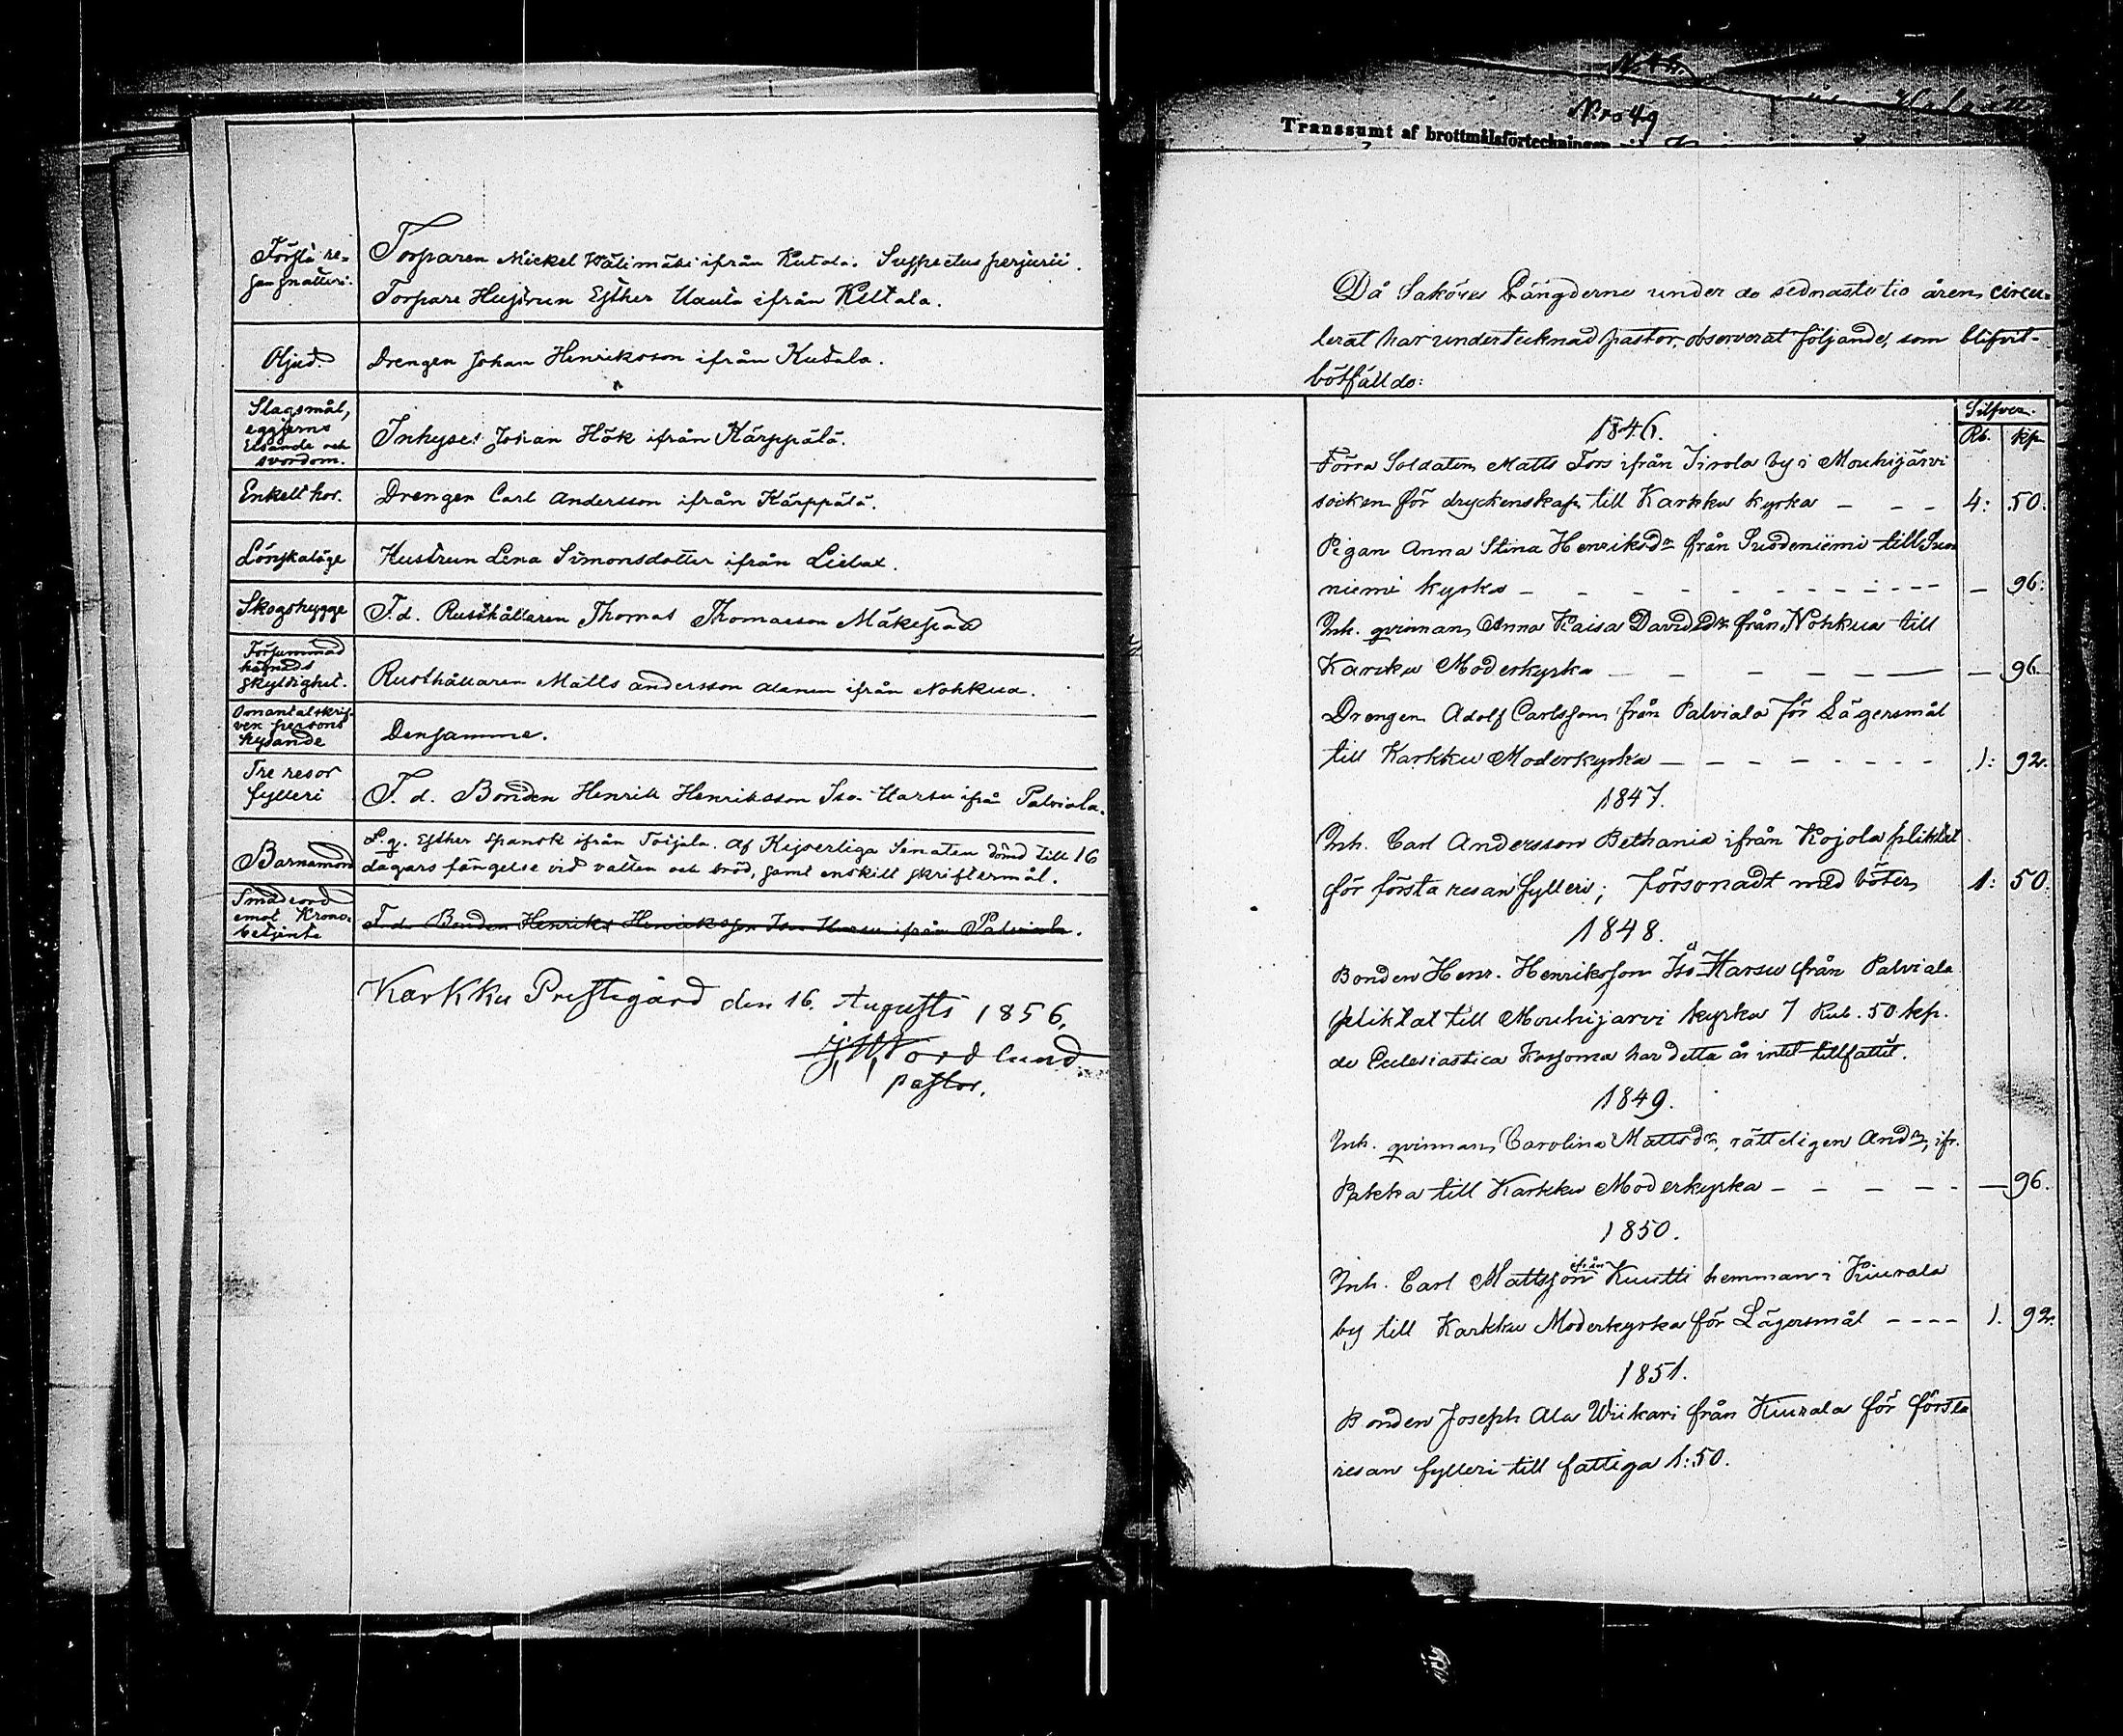 Första re-
san snatteri.
Torparen Mickel Välimäki ifrån Kutala. Suspectus perjurii.
Torpare Hustrun Esther Uauta ifrån Kutala.
Oljud.
Drengen Johan Henriksson ifrån Kutala.
Slagsmål,
eggjerns
svordom.
Inhyses Johan Hök ifrån Kärppälä.
Enkelt hor.
Drengen Carl Andersson ifrån Kärppälä.
Lönskaläge
Hustrun Lena Simonsdotter ifrån Lielax.
Skogshygge
F.d. Rusthållaren Thomas Thomasson Mäkipää
Försummad
hägnads
skyldighet.
Rusthållaren Matts Andersson Alanen ifrån Nohkua.
Omantalskrif-
ven persons
hysande
Densamme.
Tre resor
fylleri
F. d. Bonden Henrik Henriksson Iso-Harsu ifrån Palviala.
Barnamord
L.q. Esther Spansk ifrån Toijala. Af Kejserliga Senaten dömd till 16
dagars fängelse vid vatten och bröd, samt enskilt skriftermål.
Smädeord
emot Krono-
betjente
F.d. Bonden Henrik Henriksson Iso Harsu ifrån Palviala.
Karkku Prestegård den 16. Augusti 1856.
Nordlund
pastor.
N:ro 49
Transsumt af brottmålsförteckningen
Då Saköres Längderne under de sednaste tio åren circu-
lerat har undertecknad pastor observerat följande, som blifvit
bötfällde:
Silfver.
Rb. kp.
1846.
Förra Soldaten Matts Fors ifrån Tirola by i Mouhijärvi
socken för dryckenskap till Karkku kyrka - - - 4: 50.
Pigan Anna Stina Henriksdr från Suodeniemi till Suo
niemi kyrka - - - - - - - - - - 96:
Inh. qvinnan Anna Kaisa Davidsdr från Nohkua till
Karkku Moderkyrka - - - - - - - 96
Drengen Adolf Carlsson från Palviala för Lägersmål
till Karkku Moderkyrka - - - - - - - - 1: 92.
1847.
Inh. Carl Andersson Bethania ifrån Kojola pliktat
för första resan fylleri; försonadt med böter 1: 50.
1848.
Bonden Henr. Henriksson Iso-Harsu från Palviala
pliktat till Mouhijärvi kyrka 7 Rub. 50 kp.
de Ecclesiastica Kassorna har detta år intet tillfallit.
1849.
Inh. qvinnan Carolina Mattsdr, rätteligen Andr, ifr.
Pakka till Karkku Moderkyrka - - - - - - 96.
1850.
Inh. Carl Mattsson ifrån Kuutti hemman i Kiurala
by till Karkku Moderkyrka för Lägersmål - - - - 1. 92.
1851.
Bonden Joseph Ala Wiikari från Kiurala för första
resan fylleri till fattiga 1:50.